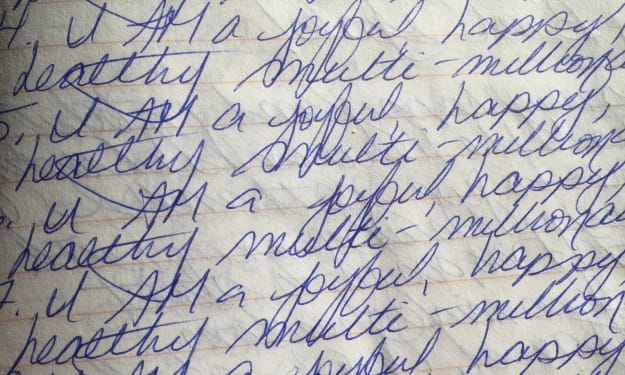 4. I AM a joyful, happy,
healthy multi-milliona
5. I AM a joyful, happy,
healthy multi-milliona
I AM a joyful, happy,
healthy multi-milliona
7. I AM a joyful, happy,
healthy multi-million
a joyful, happy